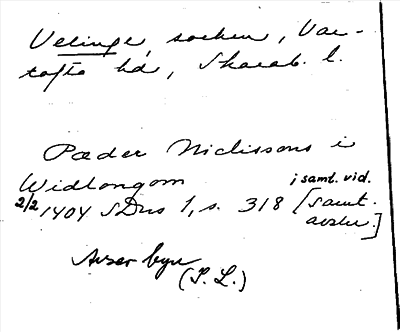 Velinge, socken, Var-
tofta hd, Skarab. l.
Pæder Niclissons i
Widlongom i samt. vid.
2/2 1404 SDns 1, s. 318 [samt.
avskr.]
Avser byn
(S. L.)